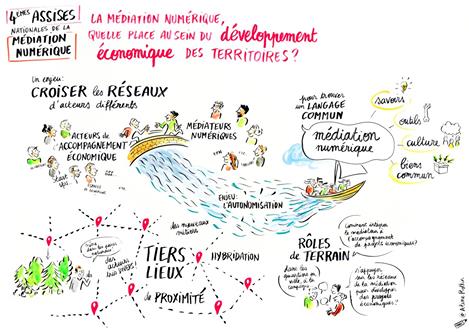 4èmes ASSISES
NATIONALES de la
MÉDIATION
NUMÉRIQUE
LA MÉDIATION NUMÉRIQUE,
QUELLE PLACE AU SEIN DU développement
économique DES TERRITOIRES?
Un enjeu:
CROISER les RÉSEAUX
d'acteurs différents
ACTEURS de
ACCOMPAGNEMENT
ÉCONOMIQUE
MÉDIATEURS
NUMÉRIQUES
pour trouver
un LANGAGE
COMMUN
médiation
numérique
savoirs
outils
culture
biens
commun
ENJEU:
L'AUTONOMISATION
des nouveaux
métiers
TIERS
LIEUX
HYBRIDATION
de PROXIMITÉ
RÔLES
de TERRAIN
Comment intégrer
la médiation à
l'accompagnement
de projets économiques?
s'appuyer
sur les réseaux
de la médiation
pour développer
des projets
économiques?